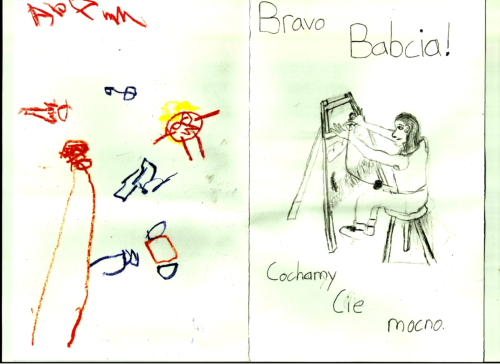 Bravo
Babcia!
Cochamy
Cie
mocno.